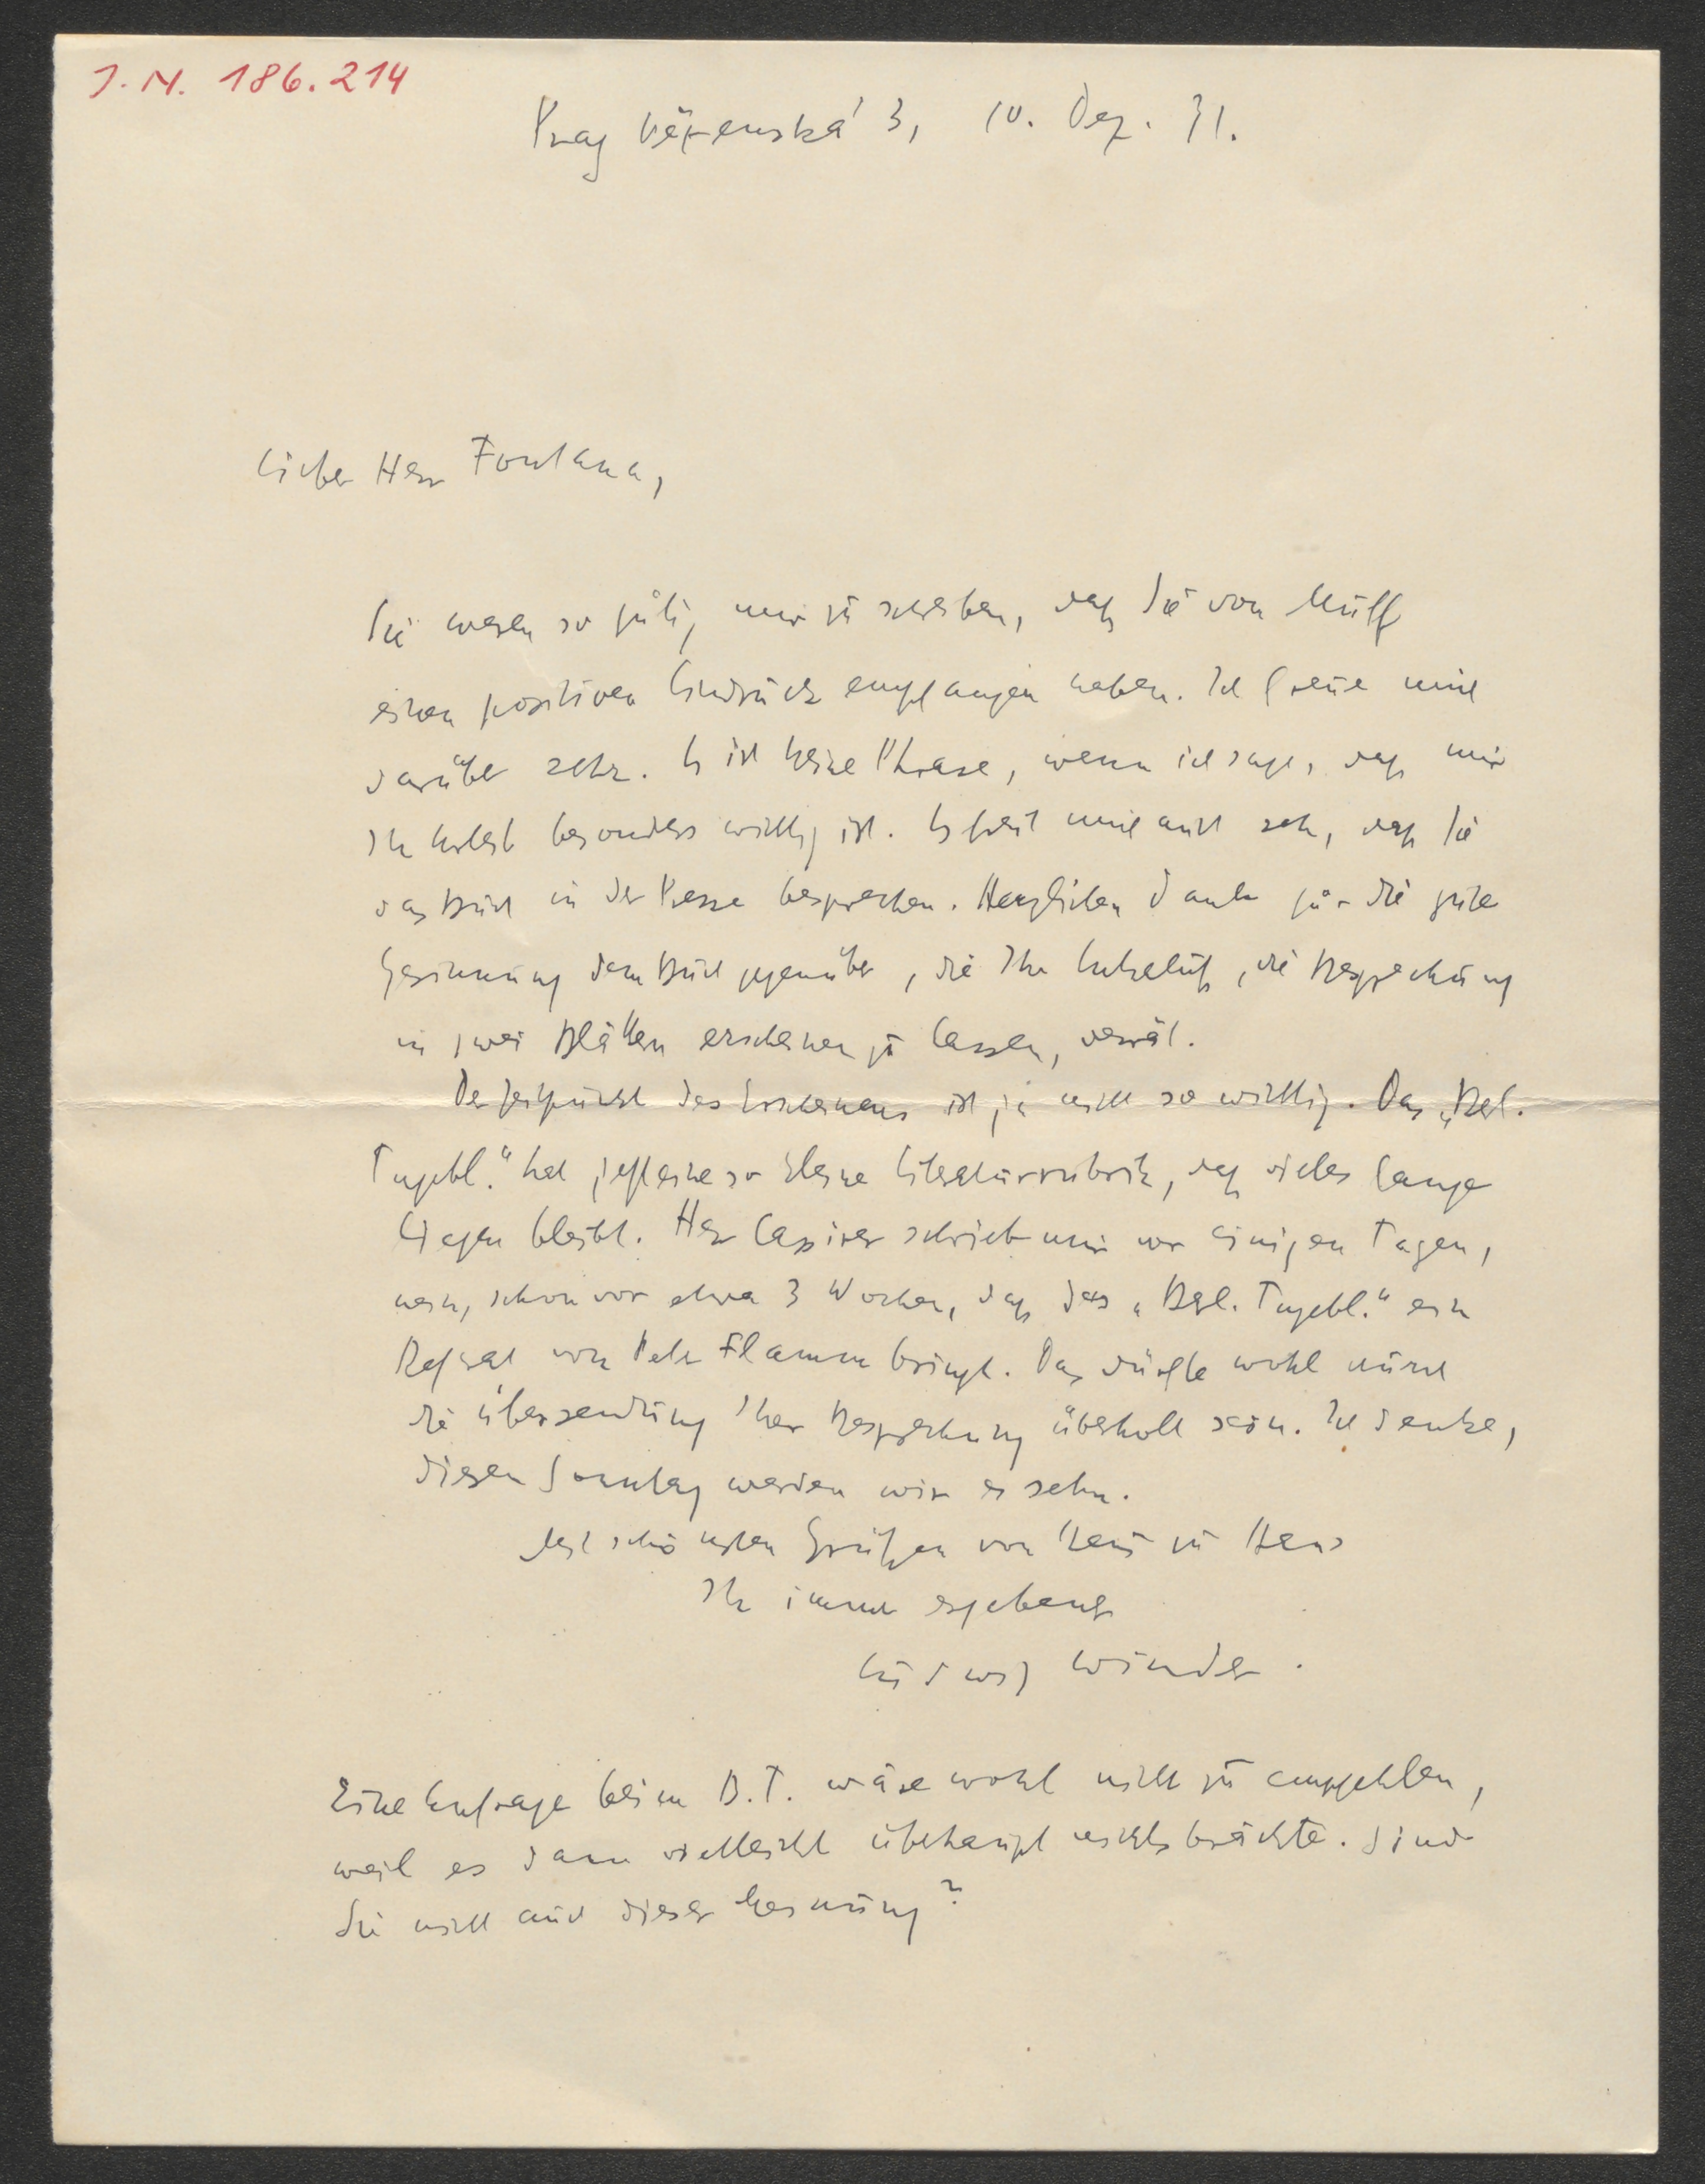 J. N. 186.214
Prag Věženská 3, 10. Dez. 31.
Lieber Herr Fontana,
Sie waren so gütig mir zu schreiben, daß Sie von Muff
einen positiven Eindruck empfangen haben. Ich freue mich
darüber sehr. Es ist keine Phrase, wenn ich sage, daß mir
Ihr Urteil besonders wichtig ist. Es freut mich auch sehr, daß Sie
das Buch in der Presse besprechen. Herzlichen Dank für die gute
Gesinnung dem Buch gegenüber, die Ihr Entschluß, die Besprechung
in zwei Blättern erscheinen zu lassen, verrät.
Der Zeitpunkt des Erscheinens ist ja nicht so wichtig. Das „Berl.
Tagebl.“ hat jetzt eine so kleine Literaturrubrik, daß vieles lange
liegen bleibt. Herr Cassirer schrieb mir vor einigen Tagen,
nein, schon vor etwa 3 Wochen, daß das „Berl. Tagebl.“ ein
Referat von Peter Flamm bringt. Das dürfte wohl durch
die Übersendung Ihrer Besprechung überholt sein. Ich denke,
diesen Sonntag werden wir es sehn.
Mit schönsten Grüßen von Haus zu Haus
Ihr immer ergebener
Ludwig Winder.
Eine Anfrage beim B. T. wäre wohl nicht zu empfehlen,
weil es dann vielleicht überhaupt nichts brächte. Sind
Sie nicht auch dieser Meinung?